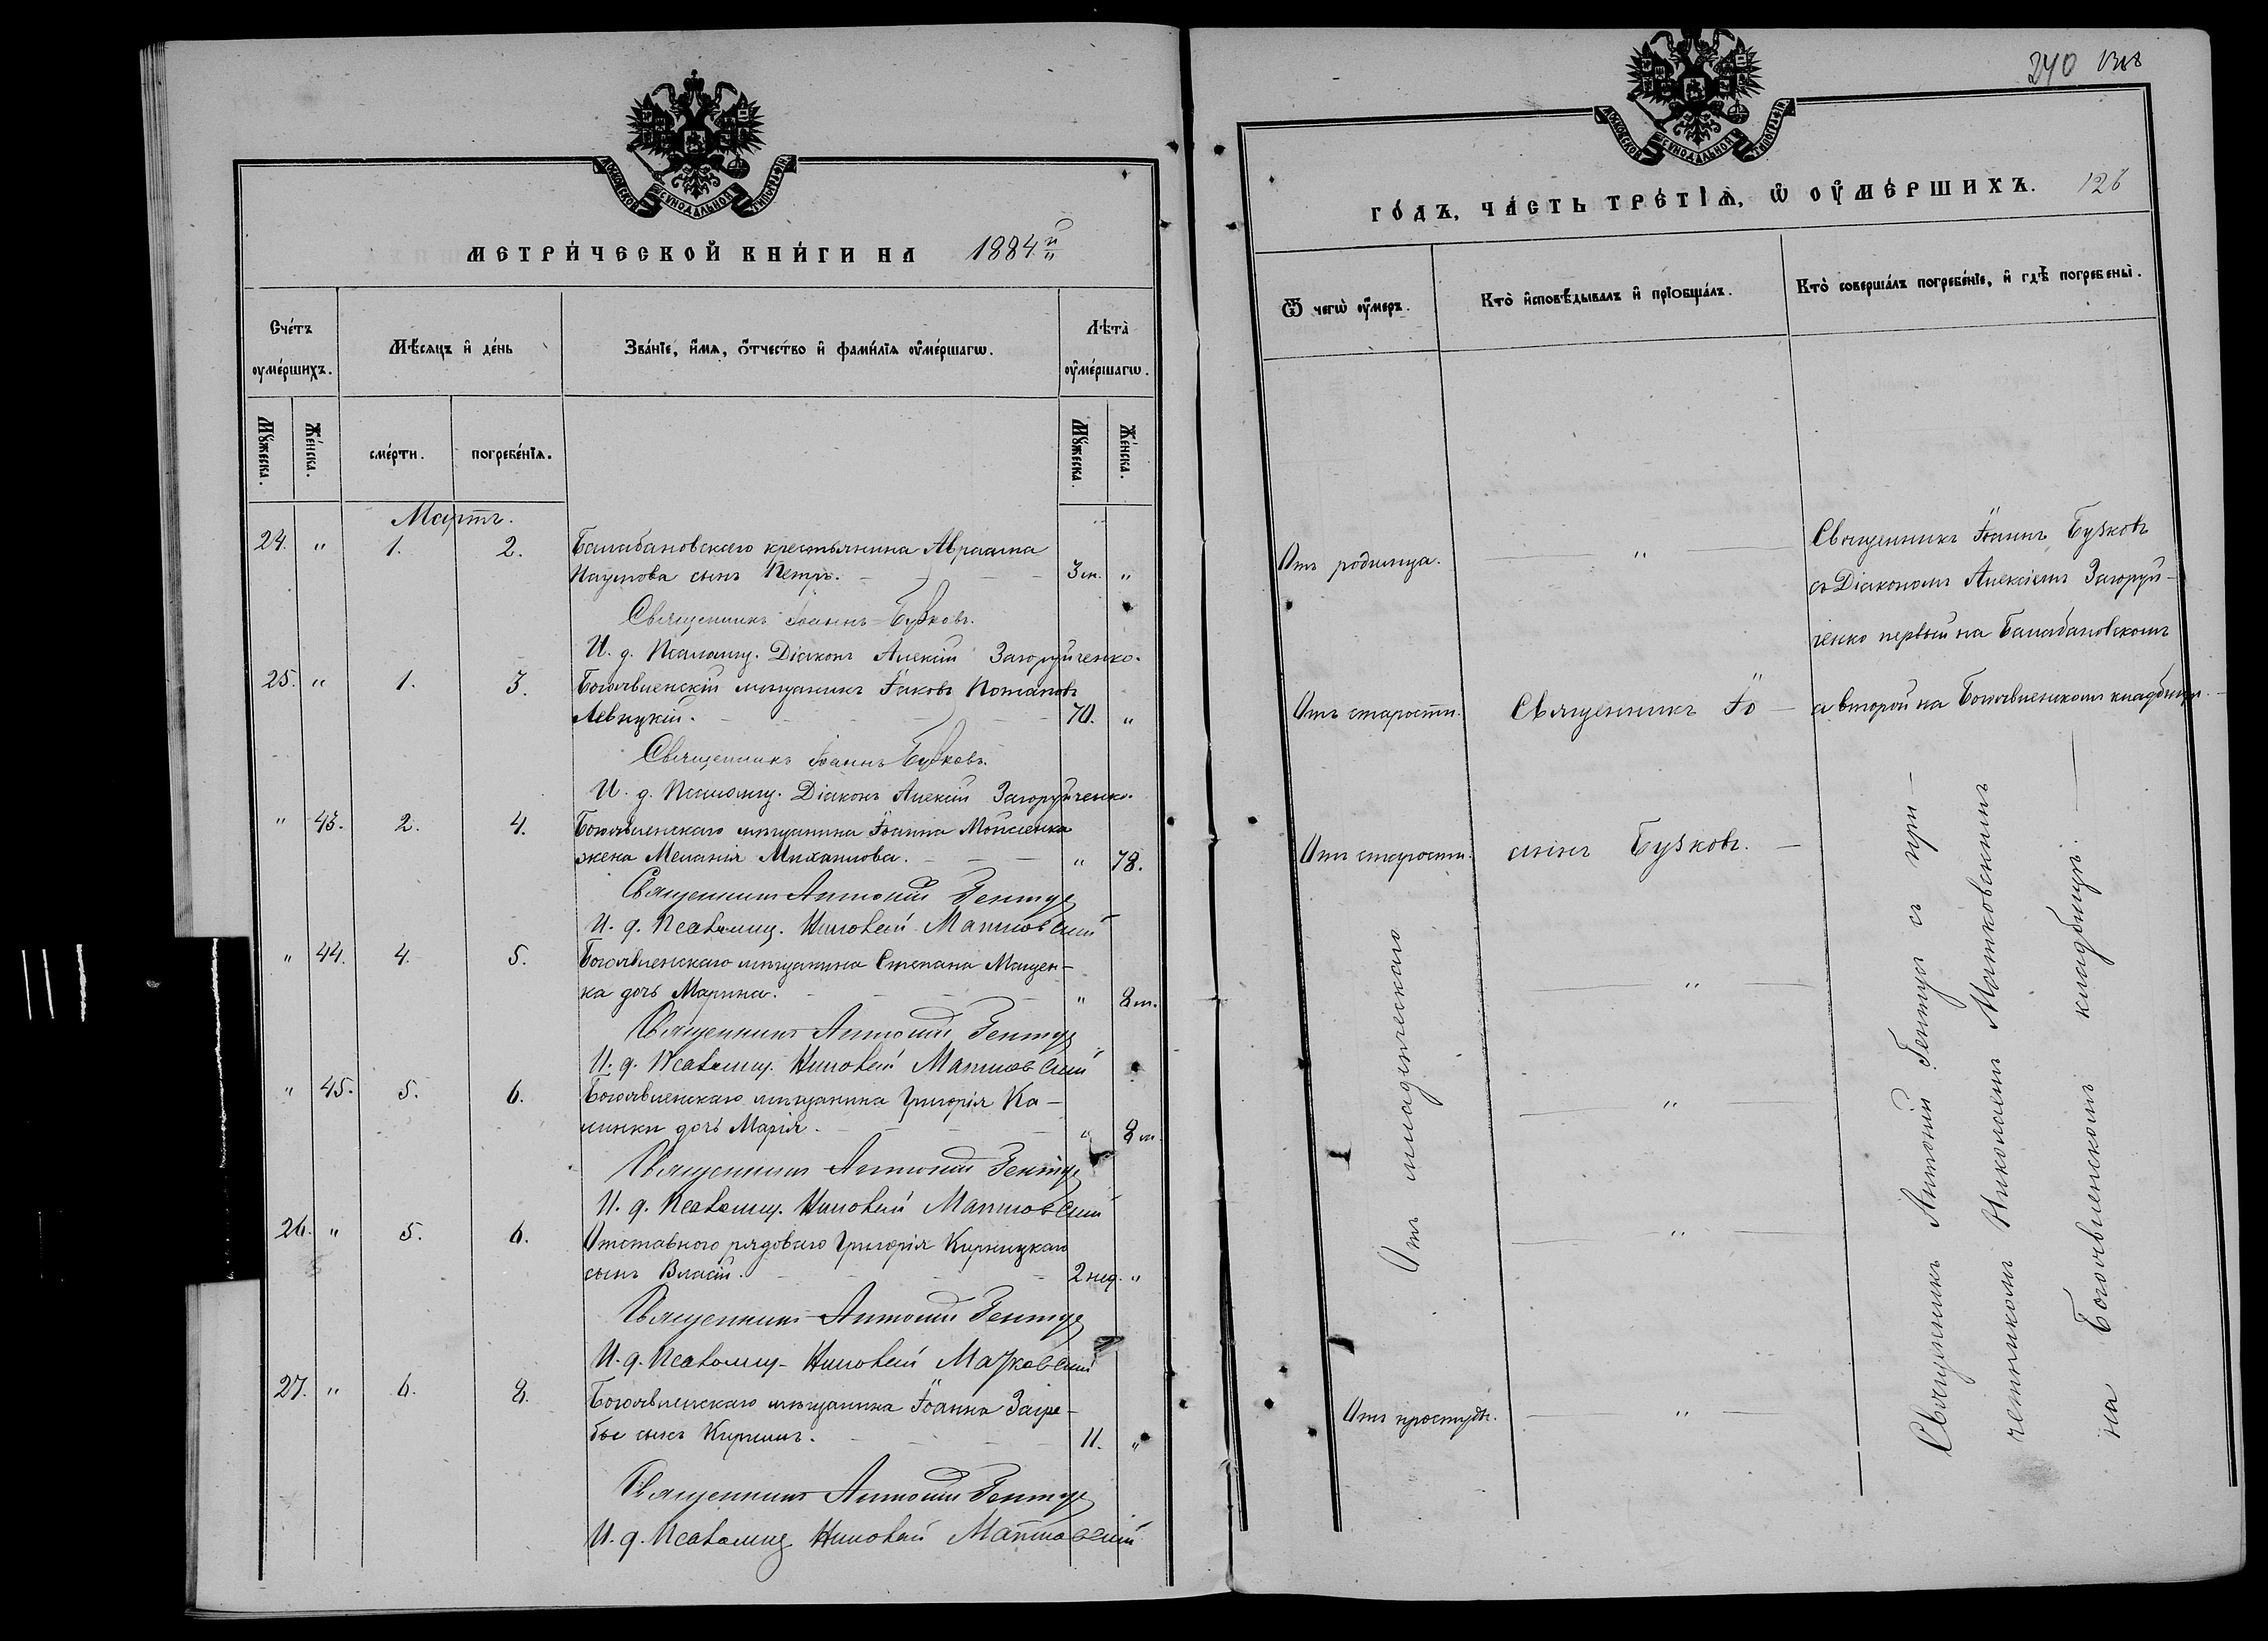 МОСКОВСКОЙ СѴНОДАЛЬНОЙ ТИПОГРАФІИ
МЕТРИ́ЧЕСКОЙ КНИ́ГИ НА 1884й
Сче́тъ оумéршихъ.
Мѣ́сяцъ и҆ де́нь
Зва́нїе, и҆́мя, ѻ҆́тчество и҆ фами́лїя оу҆ме́ршагѡ.
Лѣта̀ оу҆ме́ршагѡ.
Мꙋ́жеска.
Же́нска.
сме́рти.
погребе́нїя.
Мꙋ́жеска.
Же́нска.
Мартъ.
24. " 1. 2. Балабановскаго крестьянина Авраама
Наумова сынъ Петръ. 3 м. "
Священникъ Іоаннъ Бузковъ.
И. д. Псаломщ. Діаконъ Алексій Загоруйченко.
25. " 1. 3. Богоявленскій мѣщанинъ Іаковъ Потаповъ
Левицкій. 70. "
Священникъ Іоаннъ Бузковъ.
И. д. Псаломщ. Діаконъ Алексій Загоруйченко.
" 43. 2. 4. Богоявленскаго мѣщанина Іоанна Мойсіенка
жена Меланія Михаилова. " 78.
Священникъ Антоній Гентуз
И. д. Псаломщ. Николай Матковскій
" 44. 4. 5. Богоявленскаго мѣщанина Стефана Мащен-
ка дочь Марина. " 8 м.
Священникъ Антоній Гентуз
И. д. Псаломщ. Николай Матковскій
" 45. 5. 6. Богоявленскаго мѣщанина Григорія Ка-
линки дочь Марія. " 8 м.
Священникъ Антоній Гентуз
И. д. Псаломщ. Николай Матковскій
26. " 5. 6. Отставного рядового Григорія Кирницкаго
сынъ Власій. 2 нед. "
Священникъ Антоній Гентуз
И. д. Псаломщ. Николай Матковскій
27. " 6. 8. Богоявленскаго мѣщанина Іоанна Загре-
бы сынъ Кириллъ. 11. "
Священникъ Антоній Гентуз
И. д. Псаломщ. Николай Матковскій
240
МОСКОВСКОЙ СѴНОДАЛЬНОЙ ТИПОГРАФІИ
ГО́ДЪ, ЧА́СТЬ ТРЕ́ТІѦ, Ѡ҆ ОУ҆МЕ́РШИХЪ. 126
Ѿ чегѡ̀ оу҆́меръ.
Кто̀ и҆сповѣ́дывалъ и҆ прїобща́лъ.
Кто̀ соверша́лъ погребе́нїе, и҆ гдѣ̀ погребены̀.
Отъ родимца. "
Священникъ Іоаннъ Бузковъ
съ Діакономъ Алексіемъ Загоруй-
ченко первый на Балабановскомъ
Отъ старости. Священникъ Іо- а второй на Богоявленскомъ кладбищѣ.
Отъ старости. аннъ Бузковъ.
Отъ младенческаго
"
"
"
Отъ простуды. "
Священникъ Антоній Гентуз съ при-
четникомъ Николаемъ Матковскимъ
на Богоявленскомъ кладбищѣ.